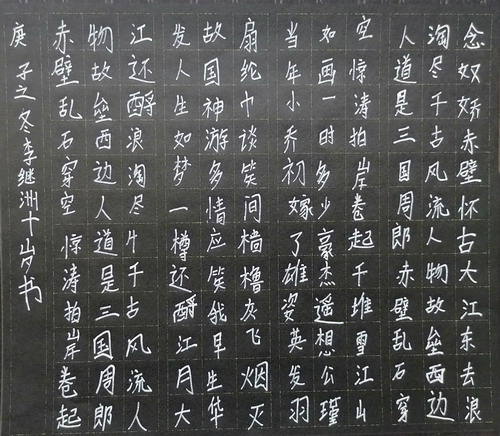 念奴娇赤壁怀古大江东去浪
淘尽千古风流人物故垒西边
人道是三国周郎赤壁乱石穿
空惊涛拍岸卷起千堆雪江山
如画一时多少豪杰遥想公瑾
当年小乔初嫁了雄姿英发羽
扇纶巾谈笑间樯橹灰飞烟灭
故国神游多情应笑我早生华
发人生如梦一樽还酹江月大
江还酹浪淘尽千古风流人
物故垒西边人道是三国周郎
赤壁乱石穿空惊涛拍岸卷起
庚子之冬李继洲十岁书